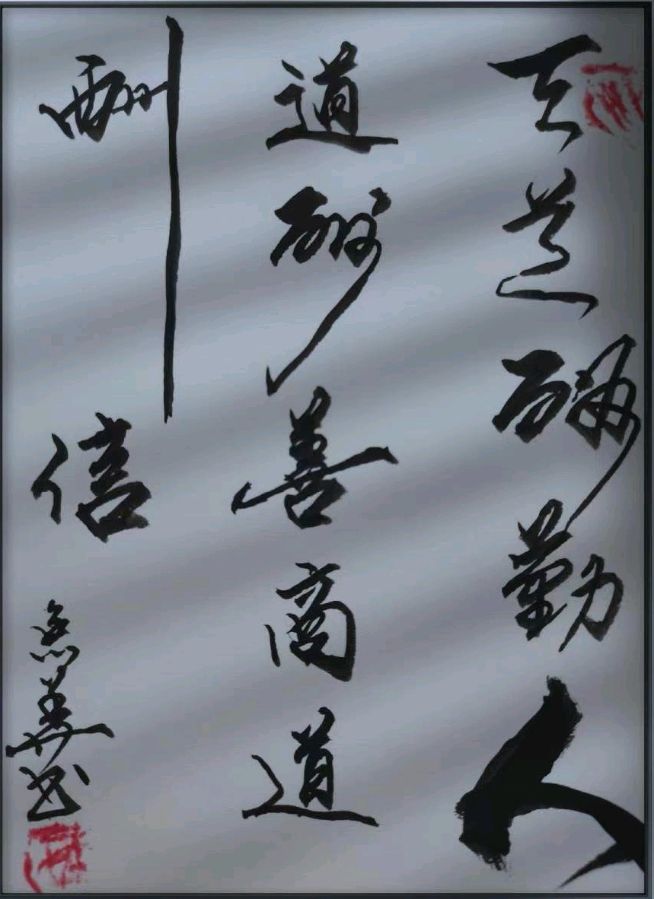 天道酬勤人
道酬善商道
酬信
书